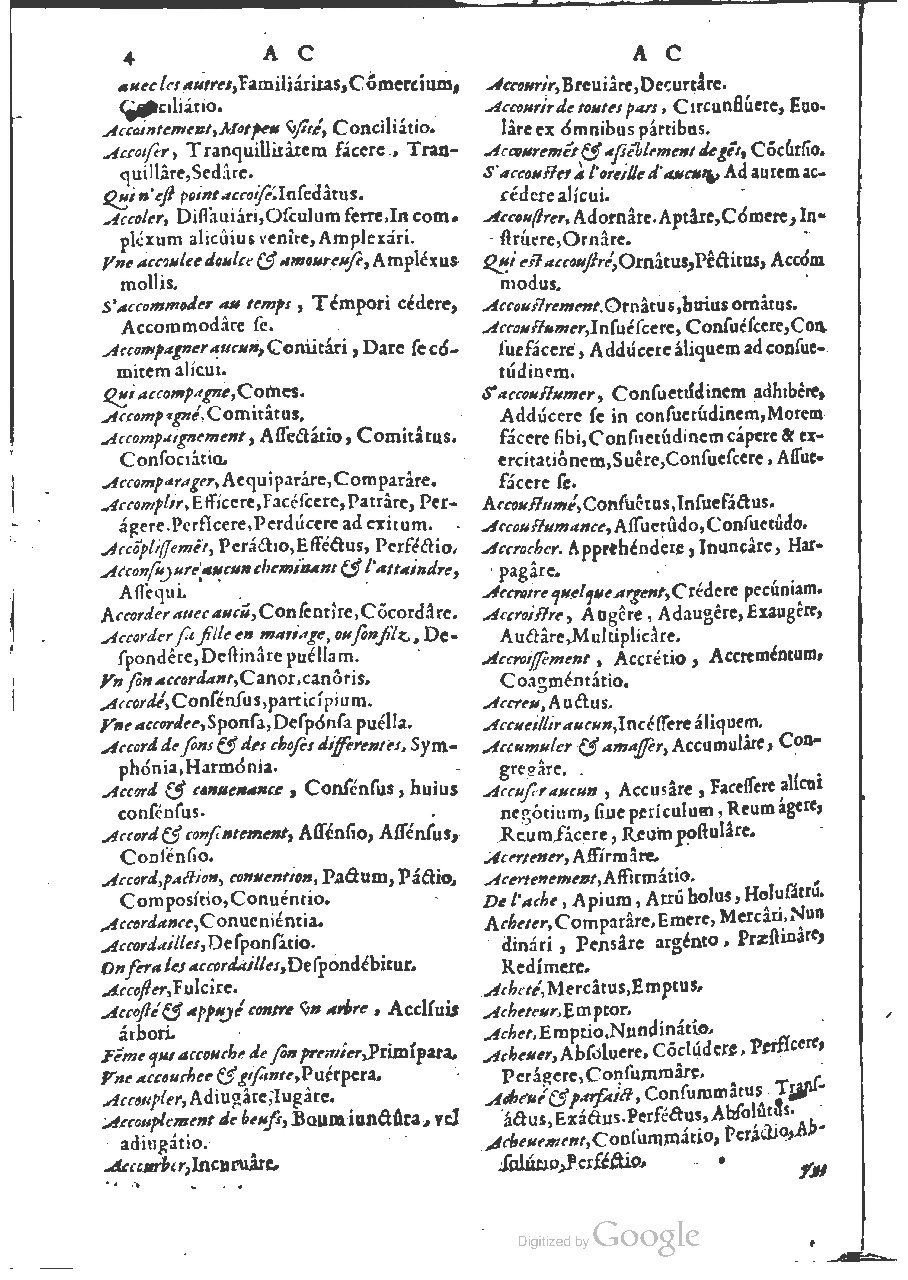 4 A C
auec les autres,Familiáritas,Cómercium,
Conciliátio.
Accointement,Mot peu vsité, Conciliátio.
Accoiser, Tranquillitâtem fácere, Tran-
quillâre,Sedâre.
Qui n'est point accoisé.Insedâtus.
Accoler, Dissauiári,Osculum ferre,In com-
pléxum alicûius venîre,Amplexári.
Vne accoulee doulce & amoureuse,Ampléxus
mollis.
S'accommoder au temps, Témpori cédere,
Accommodâre se.
Accompagner aucun,Comitári, Dare se có-
mitem alícui.
Qui accompagne,Comes.
Accompagné.Comitâtus.
Accompaignement, Assectátio, Comitâtus.
Consociátio.
Accomparager,Aequiparáre,Comparâre.
Accomplir,Efficere,Facéscere,Patrâre, Per-
ágere.Perfícere,Perdúcere ad exitum.
Accõplissemēt, Peráctio,Efféctus, Perféctio.
Acconsuyure aucun cheminant & l'attaindre,
Assequi.
Accorder auec aucū,Consentîre,Cõcordâre.
Accorder sa fille en mariage, ou son filz, De-
spondêre,Destinâre puéllam.
Vn son accordant,Canor.canôris.
Accordé,Consénsus,particípium.
Vne accordee,Sponsa,Despónsa puélla.
Accord de sons & des choses differentes. Sym-
phónia,Harmónia.
Accord & conuenance, Consénsus, huius
consénsus.
Accord & consentement, Assénsio, Assénsus,
Consénsio.
Accord,paction, conuention, Pactum, Páctio,
Composítio,Conuéntio.
Accordance,Conueniéntia.
Accordailles,Desponsátio.
On fera les accordailles,Despondébitur.
Accoster,Fulcíre.
Accosté & appuyé contre vn arbre, Acclíuis
árbori.
Fēme qui accouche de son premier,Primípara.
Vne accouchee & gisante,Puérpera.
Accoupler,Adiugâre,Iugâre.
Accouplement de beufs, Boum iunctûra, vel
adiugátio.
Accourber,Incuruâre.
A C
Accourir,Breuiâre,Decurtâre.
Accourir de toutes pars, Circunflúere, Euo-
lâre ex ómnibus pártibus.
Accouremēt & assēblement de gēs, Cõcûrsio.
S'accouster à l'oreille d'aucun, Ad aurem ac-
cédere alicui.
Accoustrer. Adornâre. Aptâre,Cómere, In-
strúere,Ornâre.
Qui est accoustré,Ornâtus,Pêctitus, Accóm
modus.
Accoustrement.Ornâtus,huius ornâtus.
Accoustumer,Insuéscere, Consuéscere,Con
suefácere, Addúcere áliquem ad consue-
túdinem.
S'accoustumer, Consuetúdinem adhibêre,
Addúcere se in consuetúdinem,Morem
fácere sibi,Consuetúdinem cápere & ex-
ercitatiônem,Suêre,Consuescere, Assue-
fácere se.
Accoustumé,Consuêtus,Insuefáctus.
Accoustumance,Assuetûdo,Consuetûdo.
Accrocher. Apprehéndere, Inuncâre, Har-
pagâre.
Accroire quelque argent,Crédere pecúniam.
Accroistre, Augêre, Adaugêre, Exaugêre,
Auctâre,Multiplicâre.
Accroissement, Accrétio, Accreméntum,
Coagméntátio.
Accreu,Auctus.
Accueillir aucun,Incéssere áliquem.
Accumuler & amasser,Accumulâre, Con-
gregâre.
Accuser aucun, Accusâre, Facessere alícui
negótium, siue perículum, Reum ágere,
Reum fácere, Reum postulâre.
Acertener,Affirmâre.
Acertenement,Affirmátio.
De l'ache, Apium, Atrū holus, Holusátrū.
Acheter,Comparâre.Emere, Mercâri.Nun
dinári, Pensâre argénto, Præstinâre,
Redímere.
Acheté,Mercâtus,Emptus.
Acheteur,Emptor.
Achet,Emptio,Nundinátio.
Acheuer,Absoluere. Cõclúdere, Perfícere,
Perágere,Consummâre.
Acheué & parfaict, Consummâtus Trans-
áctus,Exáctus.Perféctus,Absolûtus.
Acheuement,Consummátio, Peráctio,Ab-
solútio,Perféctio.
Vn
Digitized by Google